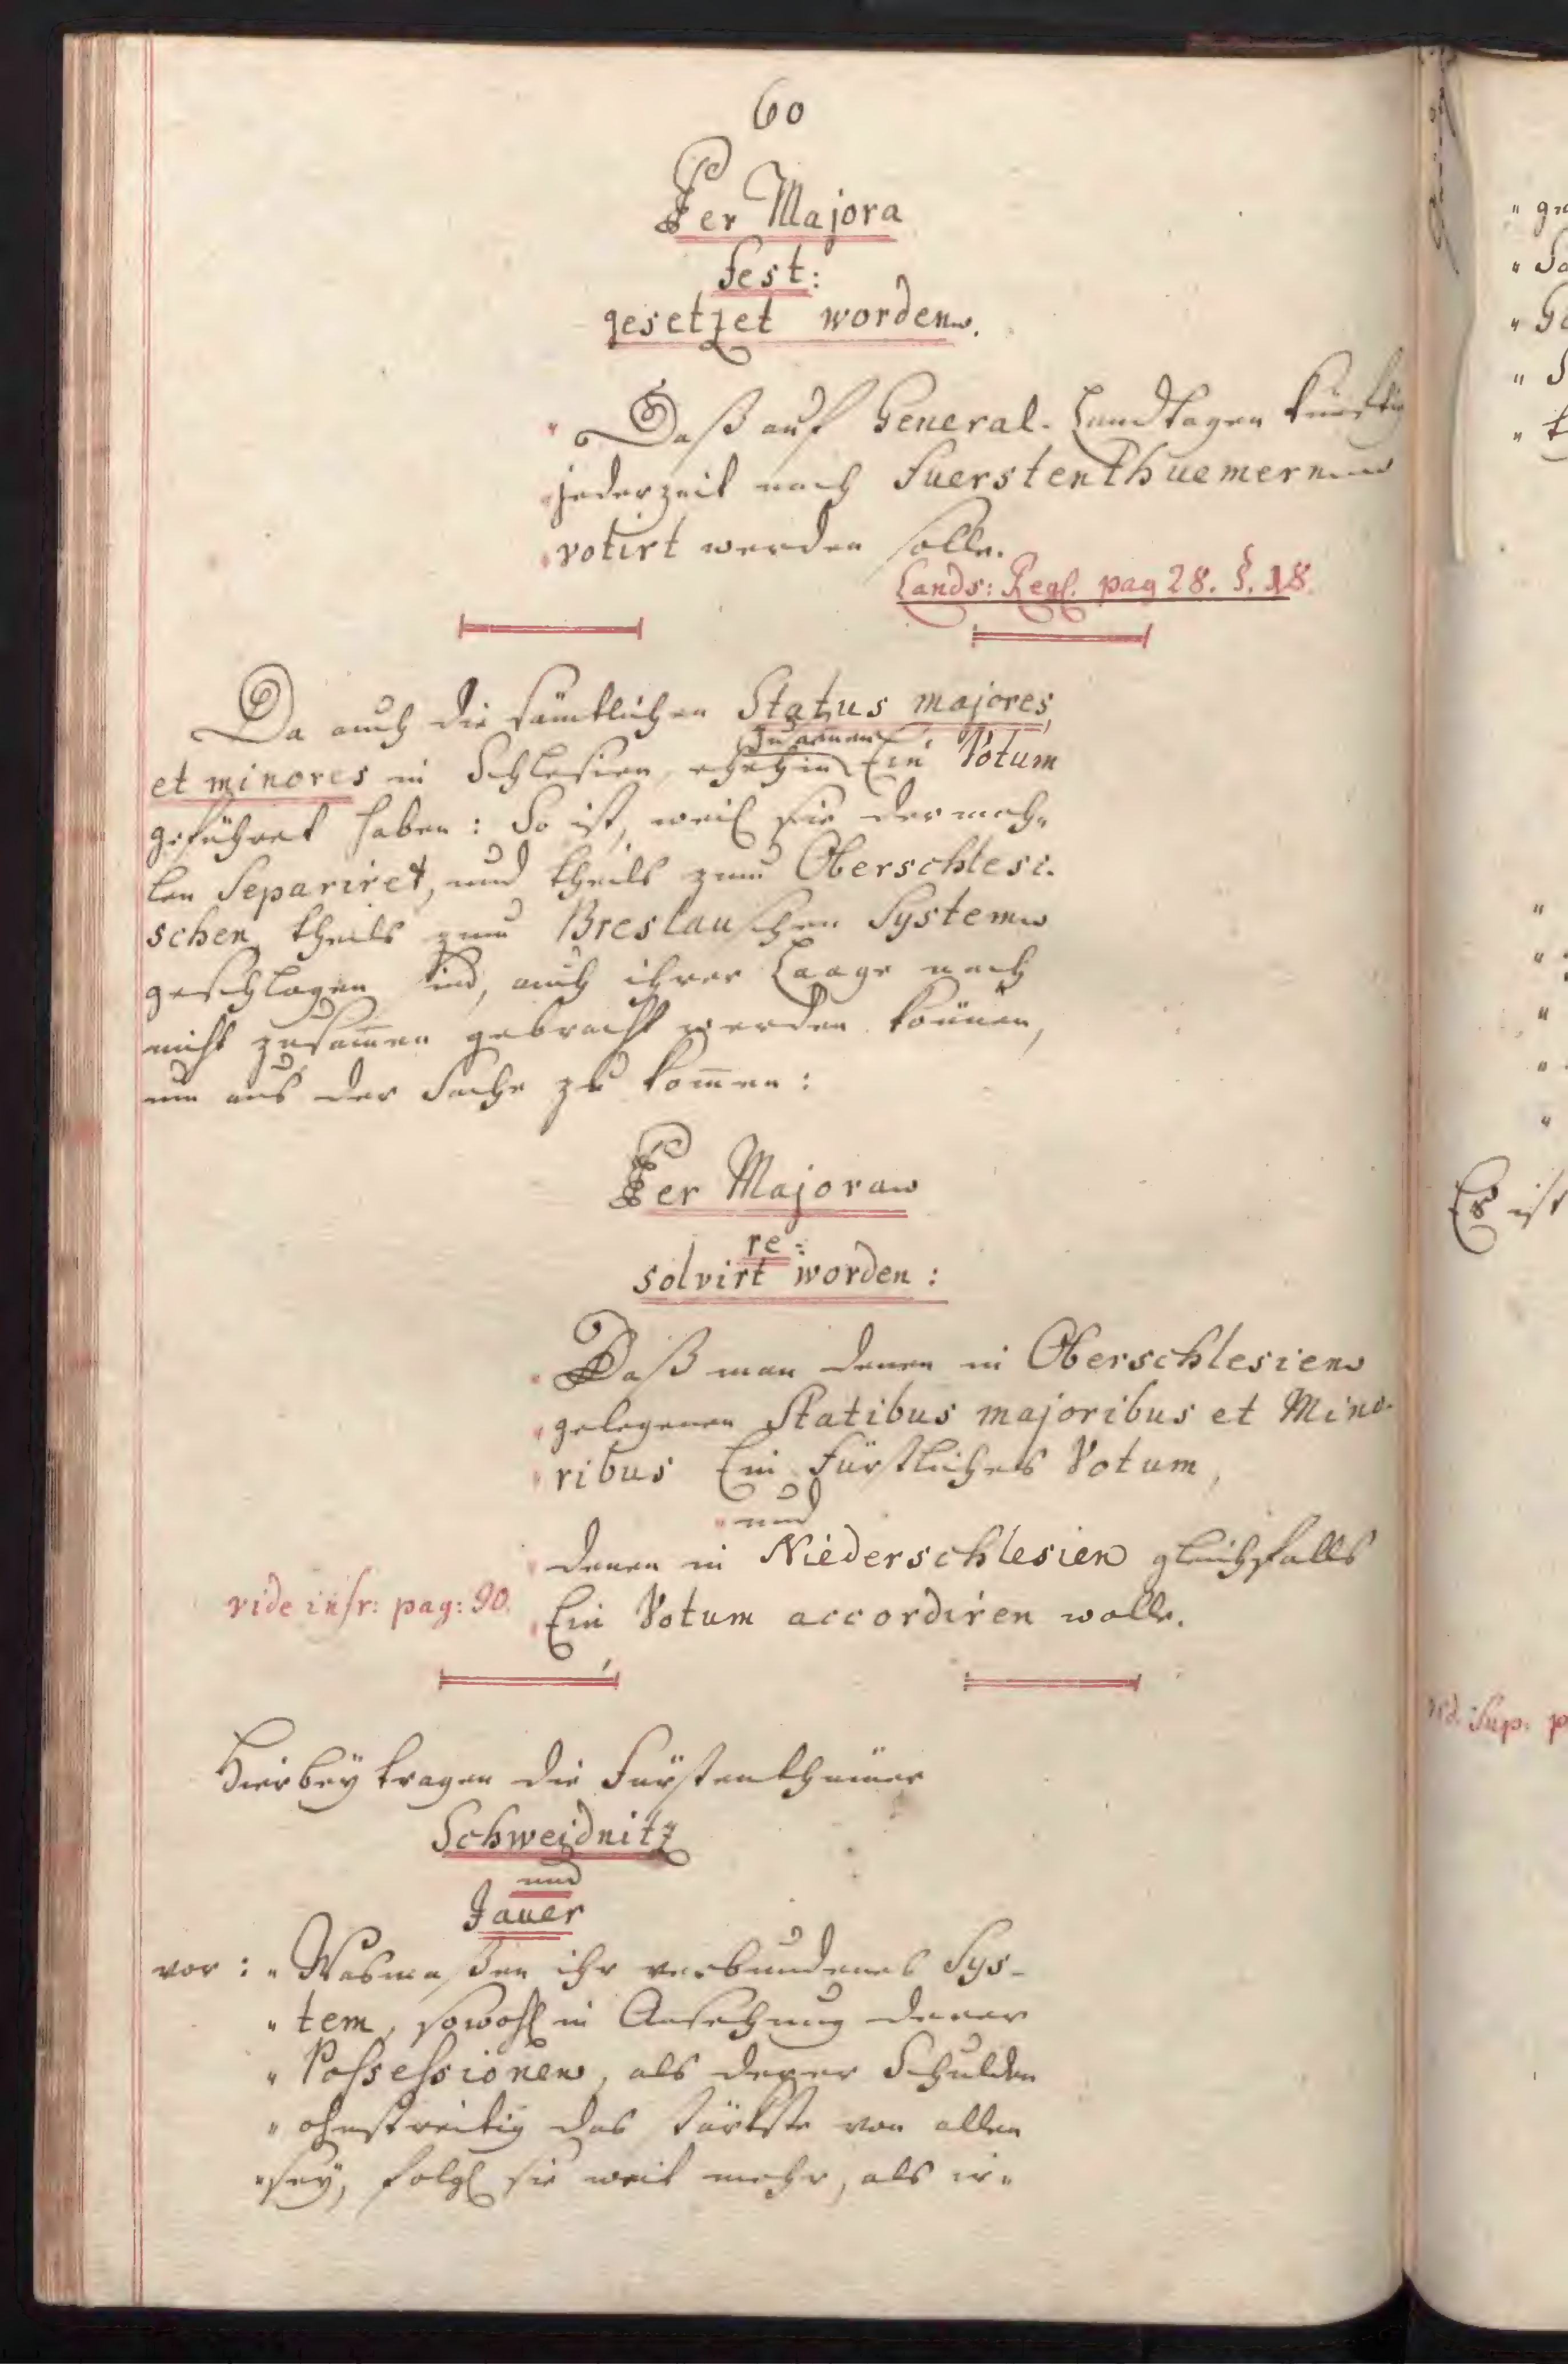 60
Per Majora
fest:
gesetzet worden.
" Daß auf General-Landtagen künftig
" jederzeit nach Fuerstenthuemern
" votirt werden solle.
Lands: Regl. pag 28. §. 18.
Da auch die sämtlichen Status majores,
et minores in Schlesien, ehehin zusammen Ein Votum
geführet haben: So ist, weil sie dermah"
len Separiret, und theils zum Oberschlesi-
schen, theils zum Breslauschen System
geschlagen sind, auch ihrer Laage nach
nicht zusam̄en gebracht werden können,
um aus der Sache zu kom̄en:
Per Majora
re:
solvirt worden:
" Daß man denen in Oberschlesien
" gelegenen Statibus majoribus et Mino-
" ribus Ein Fürstliches Votum,
" und
" denen in Niederschlesien gleichfalls
vide infr: pag: 90.
" Ein Votum accordiren wolle.
Hierbey tragen die Fürstenthümer
Schweidnitz
und
Jauer
vor: " Wasmaßen ihr verbundenes Sys-
" tem, sowohl in Ansehung derer
" Possessionen, als derer Schulden
" ohnstreitig das stärkste von allen
" sey, folgl sie weit mehr, als ir"
" 
Es ist
vid. Sup. p